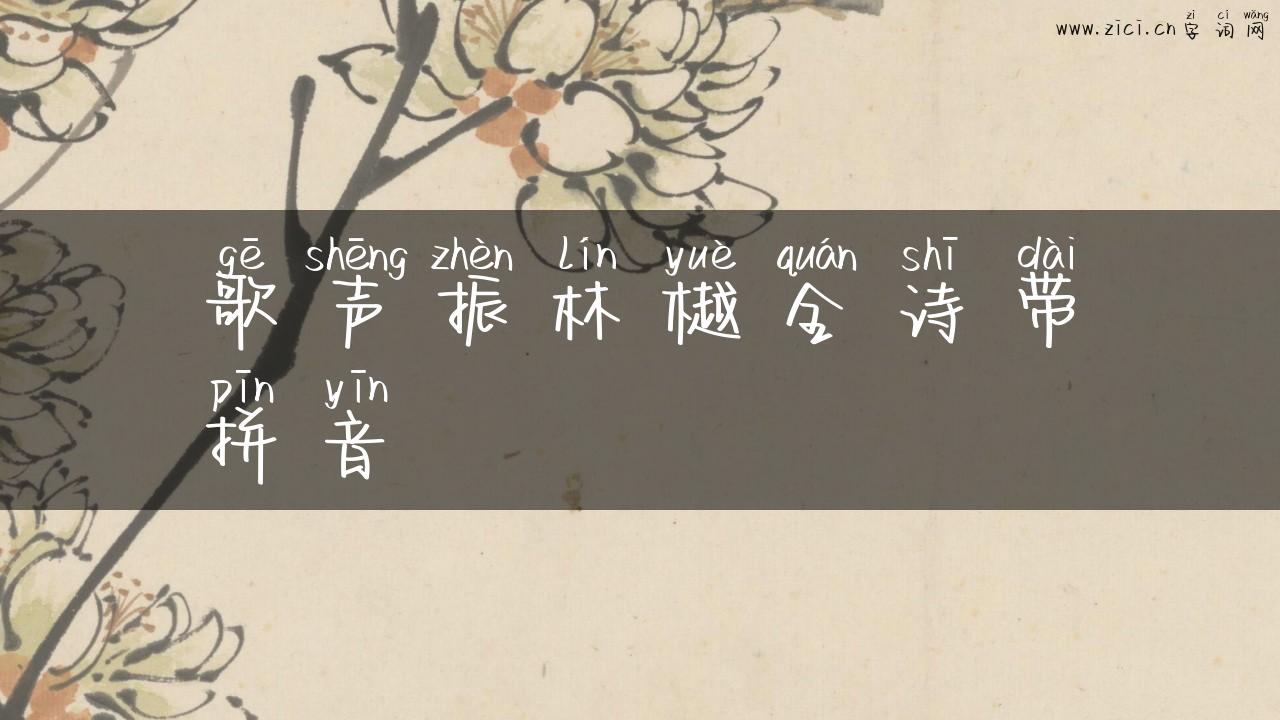 zì cí wǎng
www.zici.cn 字 词 网
gē shēng zhèn lín yuè quán shī dài
歌 声 振 林 樾 全 诗 带
pīn yīn
拼 音